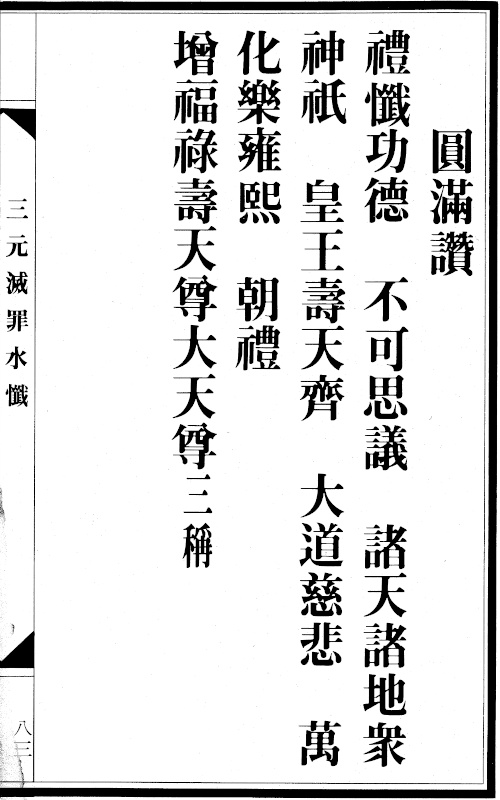 圓滿讚
禮懺功德　不可思議　諸天諸地衆
神祇　皇王壽天齊　大道慈悲　萬
化樂雍熙　朝禮
增福祿壽天尊大天尊三稱
三元滅罪水懺
八三